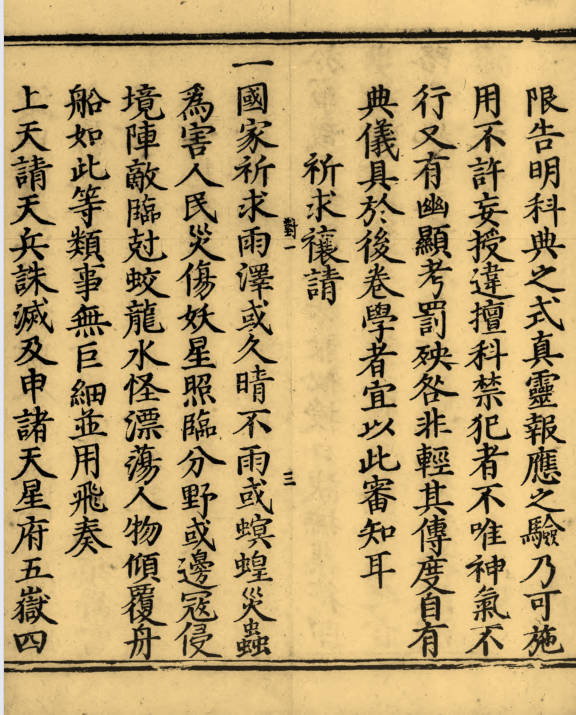 限告明科典之式真靈報應之驗乃可施
用不許妄授違擅科禁犯者不唯神氣不
行又有幽顯考罰殃咎非輕其傳度自有
典儀具於後卷學者宜以此審知耳
祈求禳請
對一
三
一國家祈求雨澤或久晴不雨或螟蝗災蟲
為害人民災傷妖星照臨分野或邊寇侵
境陣敵臨尅蛟龍水怪漂蕩人物傾覆舟
船如此等類事無巨細並用飛奏
上天請天兵誅滅及申諸天星府五嶽四